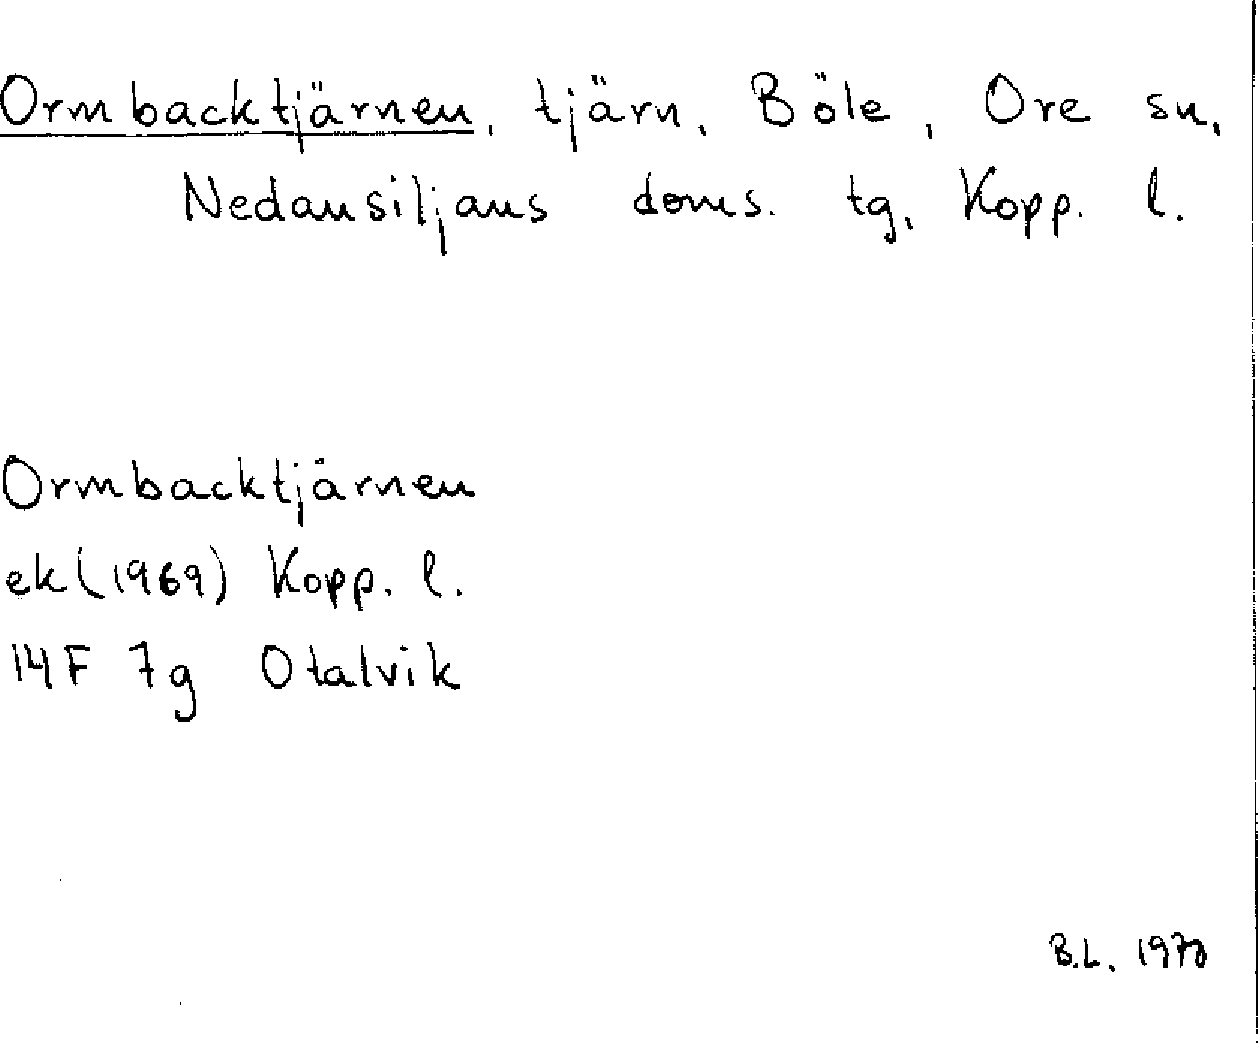 Ormbacktjärnen, tjärn, Böle, Ore sn,
Nedansiljans doms. tg, Kopp. l.
Ormbacktjärnen
ek (1969) Kopp. l.
14F 7g Otalvik
B.L. 1970